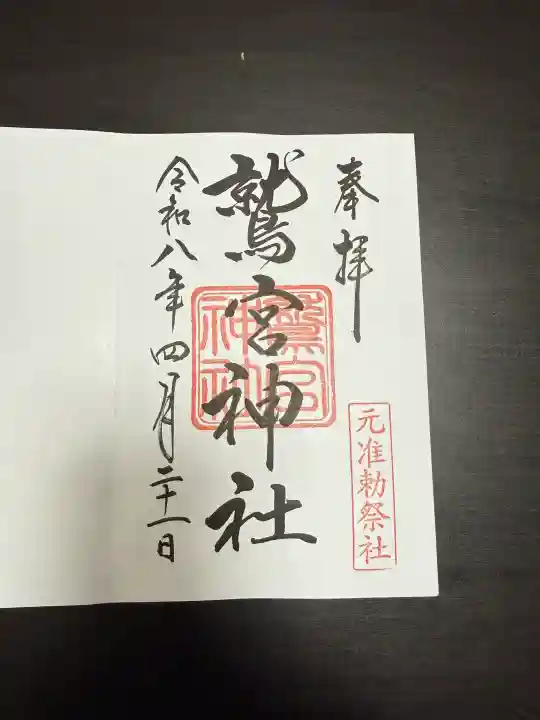 奉拝
元准勅祭社
鷲宮神社
鷲宮
神社
令和八年四月二十一日